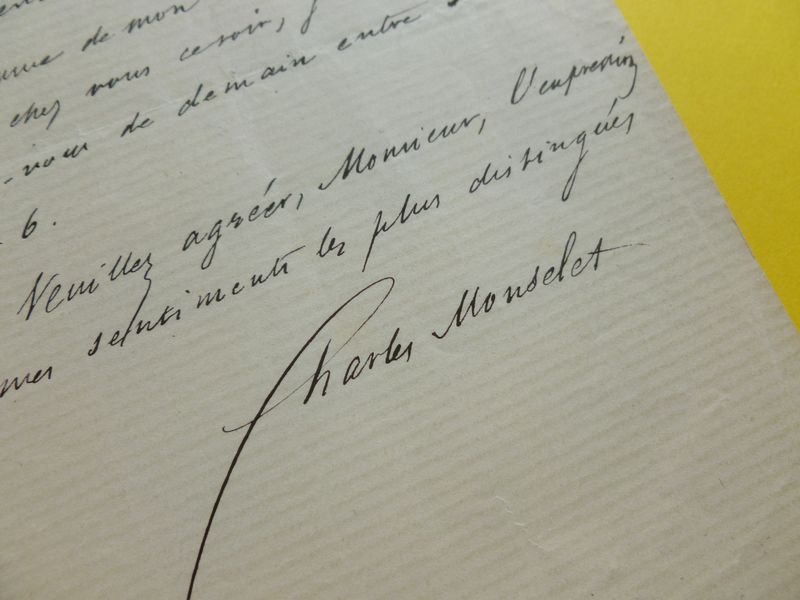 de mon
chez vous ce soir,
-vous de demain entre
6.
Veuillez agréer, Monsieur, l'expression
mes sentiments les plus distingués
Charles Monselet